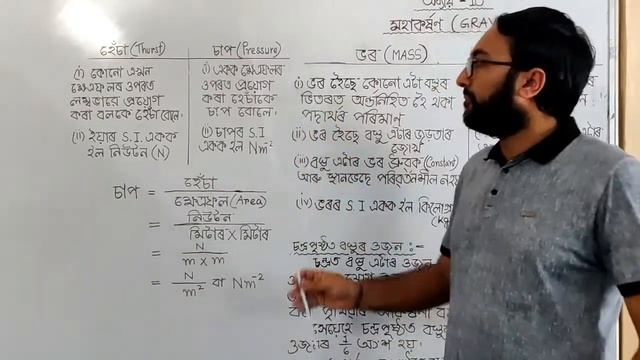 অধ্যায় - 10
মহাকৰ্ষণ (GRAV
হেঁচা (Thurst)
(i) কোনো এখন
ক্ষেত্ৰফলৰ ওপৰত
লম্বভাৱে প্ৰয়োগ
কৰা বলকে হেঁচা বোলে।
(ii) ইয়াৰ S.I. একক
হ'ল নিউটন (N)
চাপ (Pressure)
(i) একক ক্ষেত্ৰফলৰ
ওপৰত প্ৰয়োগ
কৰা হেঁচাকে
চাপ বোলে।
(ii) চাপৰ S.I
একক হ'ল Nm⁻²
চাপ = হেঁচা / ক্ষেত্ৰফল (Area)
= নিউটন / মিটাৰ × মিটাৰ
= N / m × m
= N / m² বা Nm⁻²
ভৰ (MASS)
(i) ভৰ হৈছে কোনো এটা বস্তুৰ
ভিতৰত অন্তৰ্নিহিত হৈ থকা
পদাৰ্থৰ পৰিমাণ
(ii) ভৰ হৈছে বস্তু এটাৰ জড়তাৰ
জোখ
(iii) বস্তু এটাৰ ভৰ ধ্ৰুৱক (Constant)
আৰু স্থানভেদে পৰিৱৰ্তনশীল নহয়
(iv) ভৰৰ S I একক হ'ল কিলোগ্ৰা
(Kg
চন্দ্ৰপৃষ্ঠত বস্তুৰ ওজন :-
চন্দ্ৰত বস্তু এটাৰ ওজন
পৃথিৱীৰ আকৰ্ষণী ব
সেয়েহে চন্দ্ৰপৃষ্ঠত বস্তুৰ
ওজনৰ 1/6 অংশ হয়।